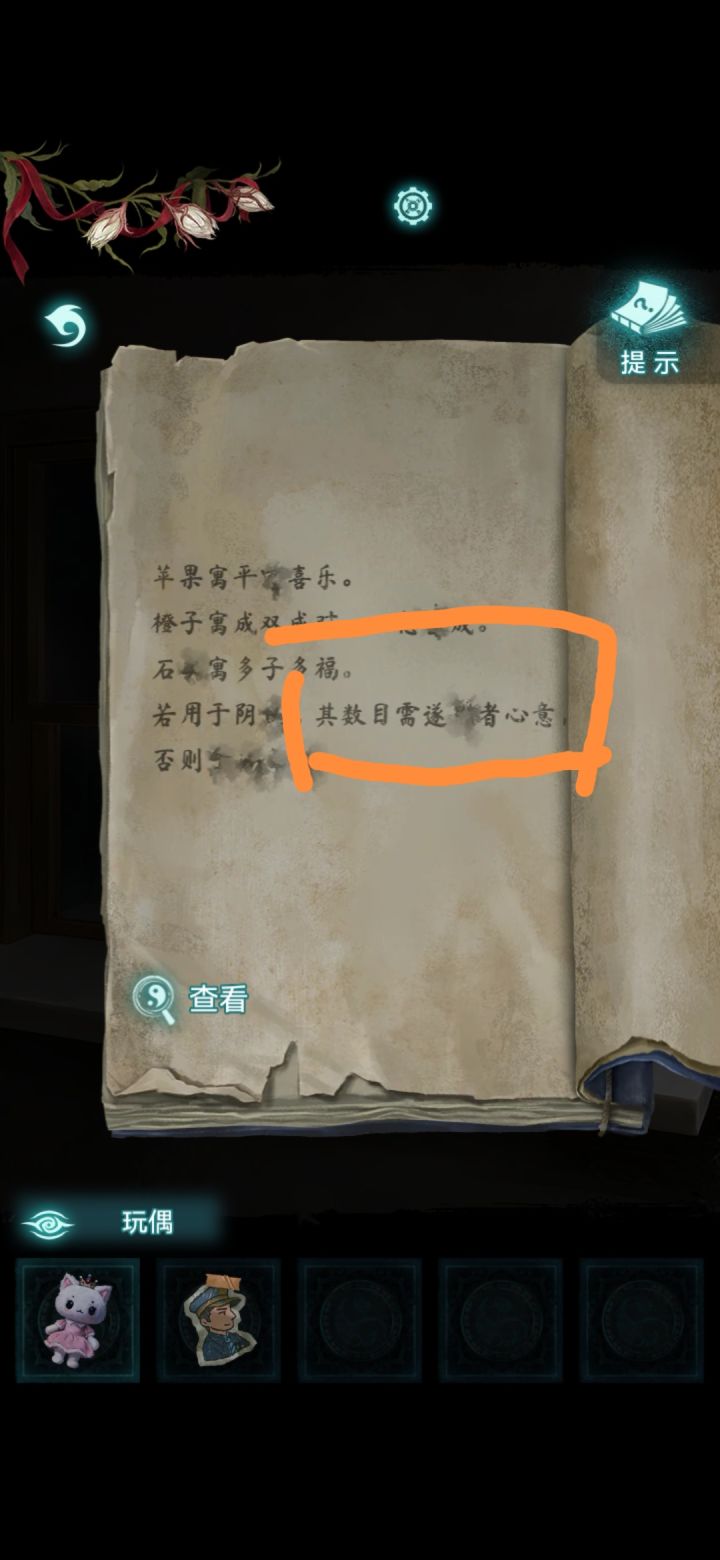 提示
苹果寓平喜乐。
橙子寓成双成成。
石寓多子多福。
若用于阴其数目需遂者心意,
否则
查看
玩偶